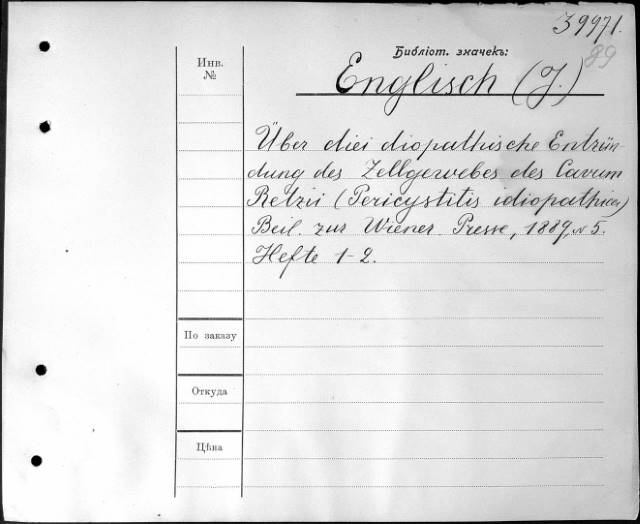 39971.
Библіот. значекъ:
89
Инв.
№
Englisch (J.)
Über diei diopathische Entzün-
dung des Zellgewebes des Cavum
Retzii (Pericystitis idiopathica)
Beil. zur Wiener Presse, 1889, № 5.
Hefte 1-2.
По заказу
Откуда
Цѣна